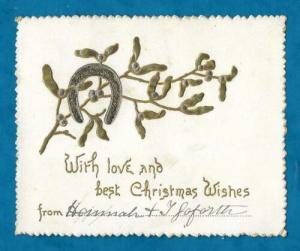 With love and
best Christmas Wishes
from Hannah + T Goforth